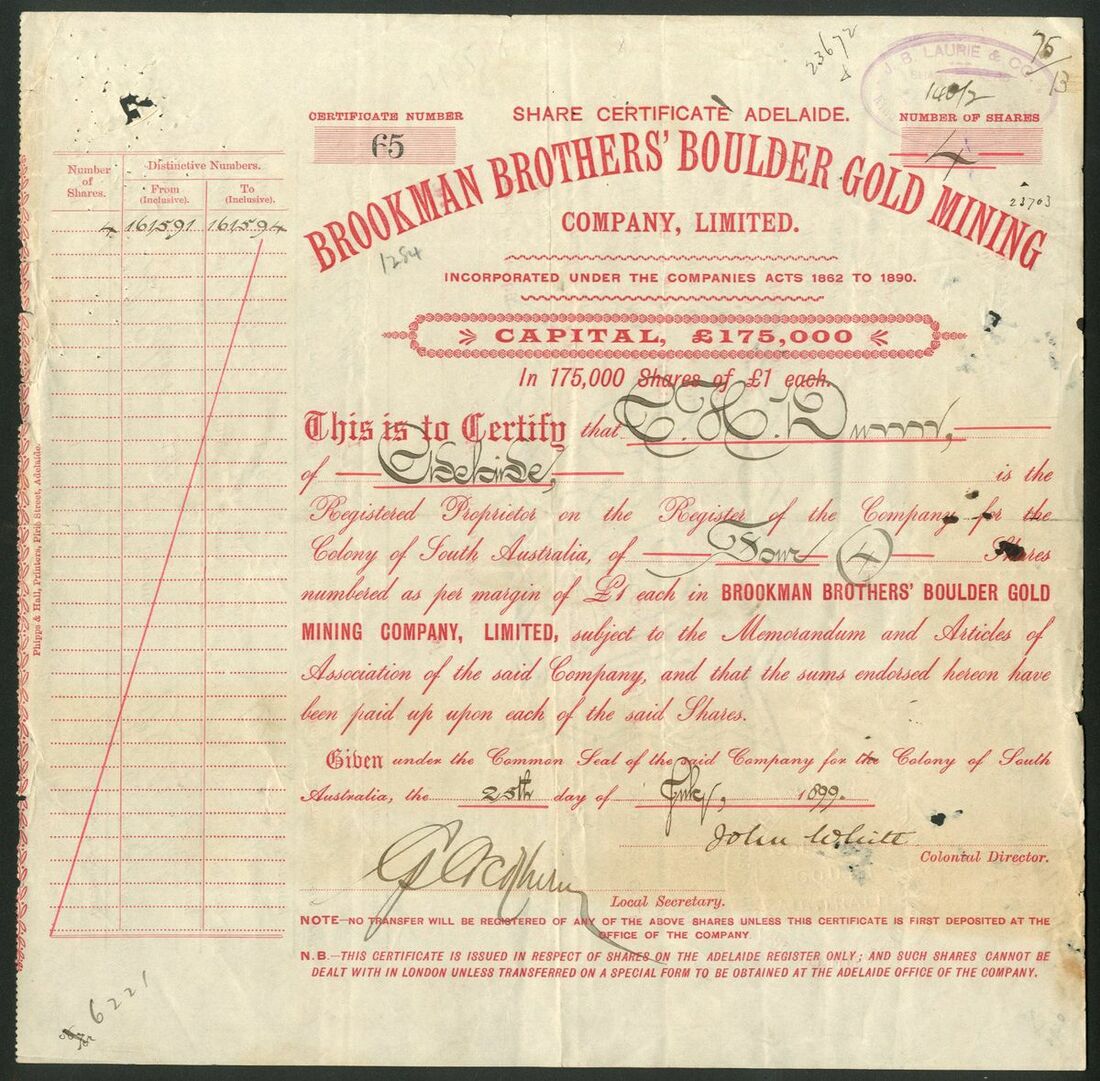 23672
J. B. LAURIE & CO
75/13
140/2
CERTIFICATE NUMBER
65
SHARE CERTIFICATE ADELAIDE.
NUMBER OF SHARES
4
BROOKMAN BROTHERS' BOULDER GOLD MINING
COMPANY, LIMITED.
23703
1284
INCORPORATED UNDER THE COMPANIES ACTS 1862 TO 1890.
CAPITAL, £175,000
In 175,000 Shares of £1 each.
Number of Shares.
Distinctive Numbers.
From (Inclusive).
To (Inclusive).
4 161591 161594
This is to Certify that
of Adelaide, is the
Registered Proprietor on the Register of the Company for the
Colony of South Australia, of Four (4) Shares
numbered as per margin of £1 each in BROOKMAN BROTHERS' BOULDER GOLD
MINING COMPANY, LIMITED, subject to the Memorandum and Articles of
Association of the said Company, and that the sums endorsed hereon have
been paid up upon each of the said Shares.
Given under the Common Seal of the said Company for the Colony of South
Australia, the 25th day of July, 1899.
John White
Colonial Director.
Local Secretary.
NOTE—NO TRANSFER WILL BE REGISTERED OF ANY OF THE ABOVE SHARES UNLESS THIS CERTIFICATE IS FIRST DEPOSITED AT THE
OFFICE OF THE COMPANY
N.B.—THIS CERTIFICATE IS ISSUED IN RESPECT OF SHARES ON THE ADELAIDE REGISTER ONLY; AND SUCH SHARES CANNOT BE
DEALT WITH IN LONDON UNLESS TRANSFERRED ON A SPECIAL FORM TO BE OBTAINED AT THE ADELAIDE OFFICE OF THE COMPANY.
Phipps & Hall, Printers, Pirie Street, Adelaide.
6221